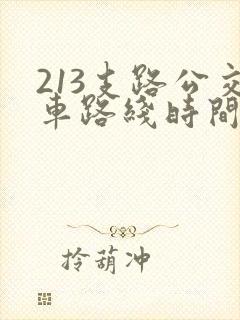 213支路公交
車路綫時間
拎葫冲